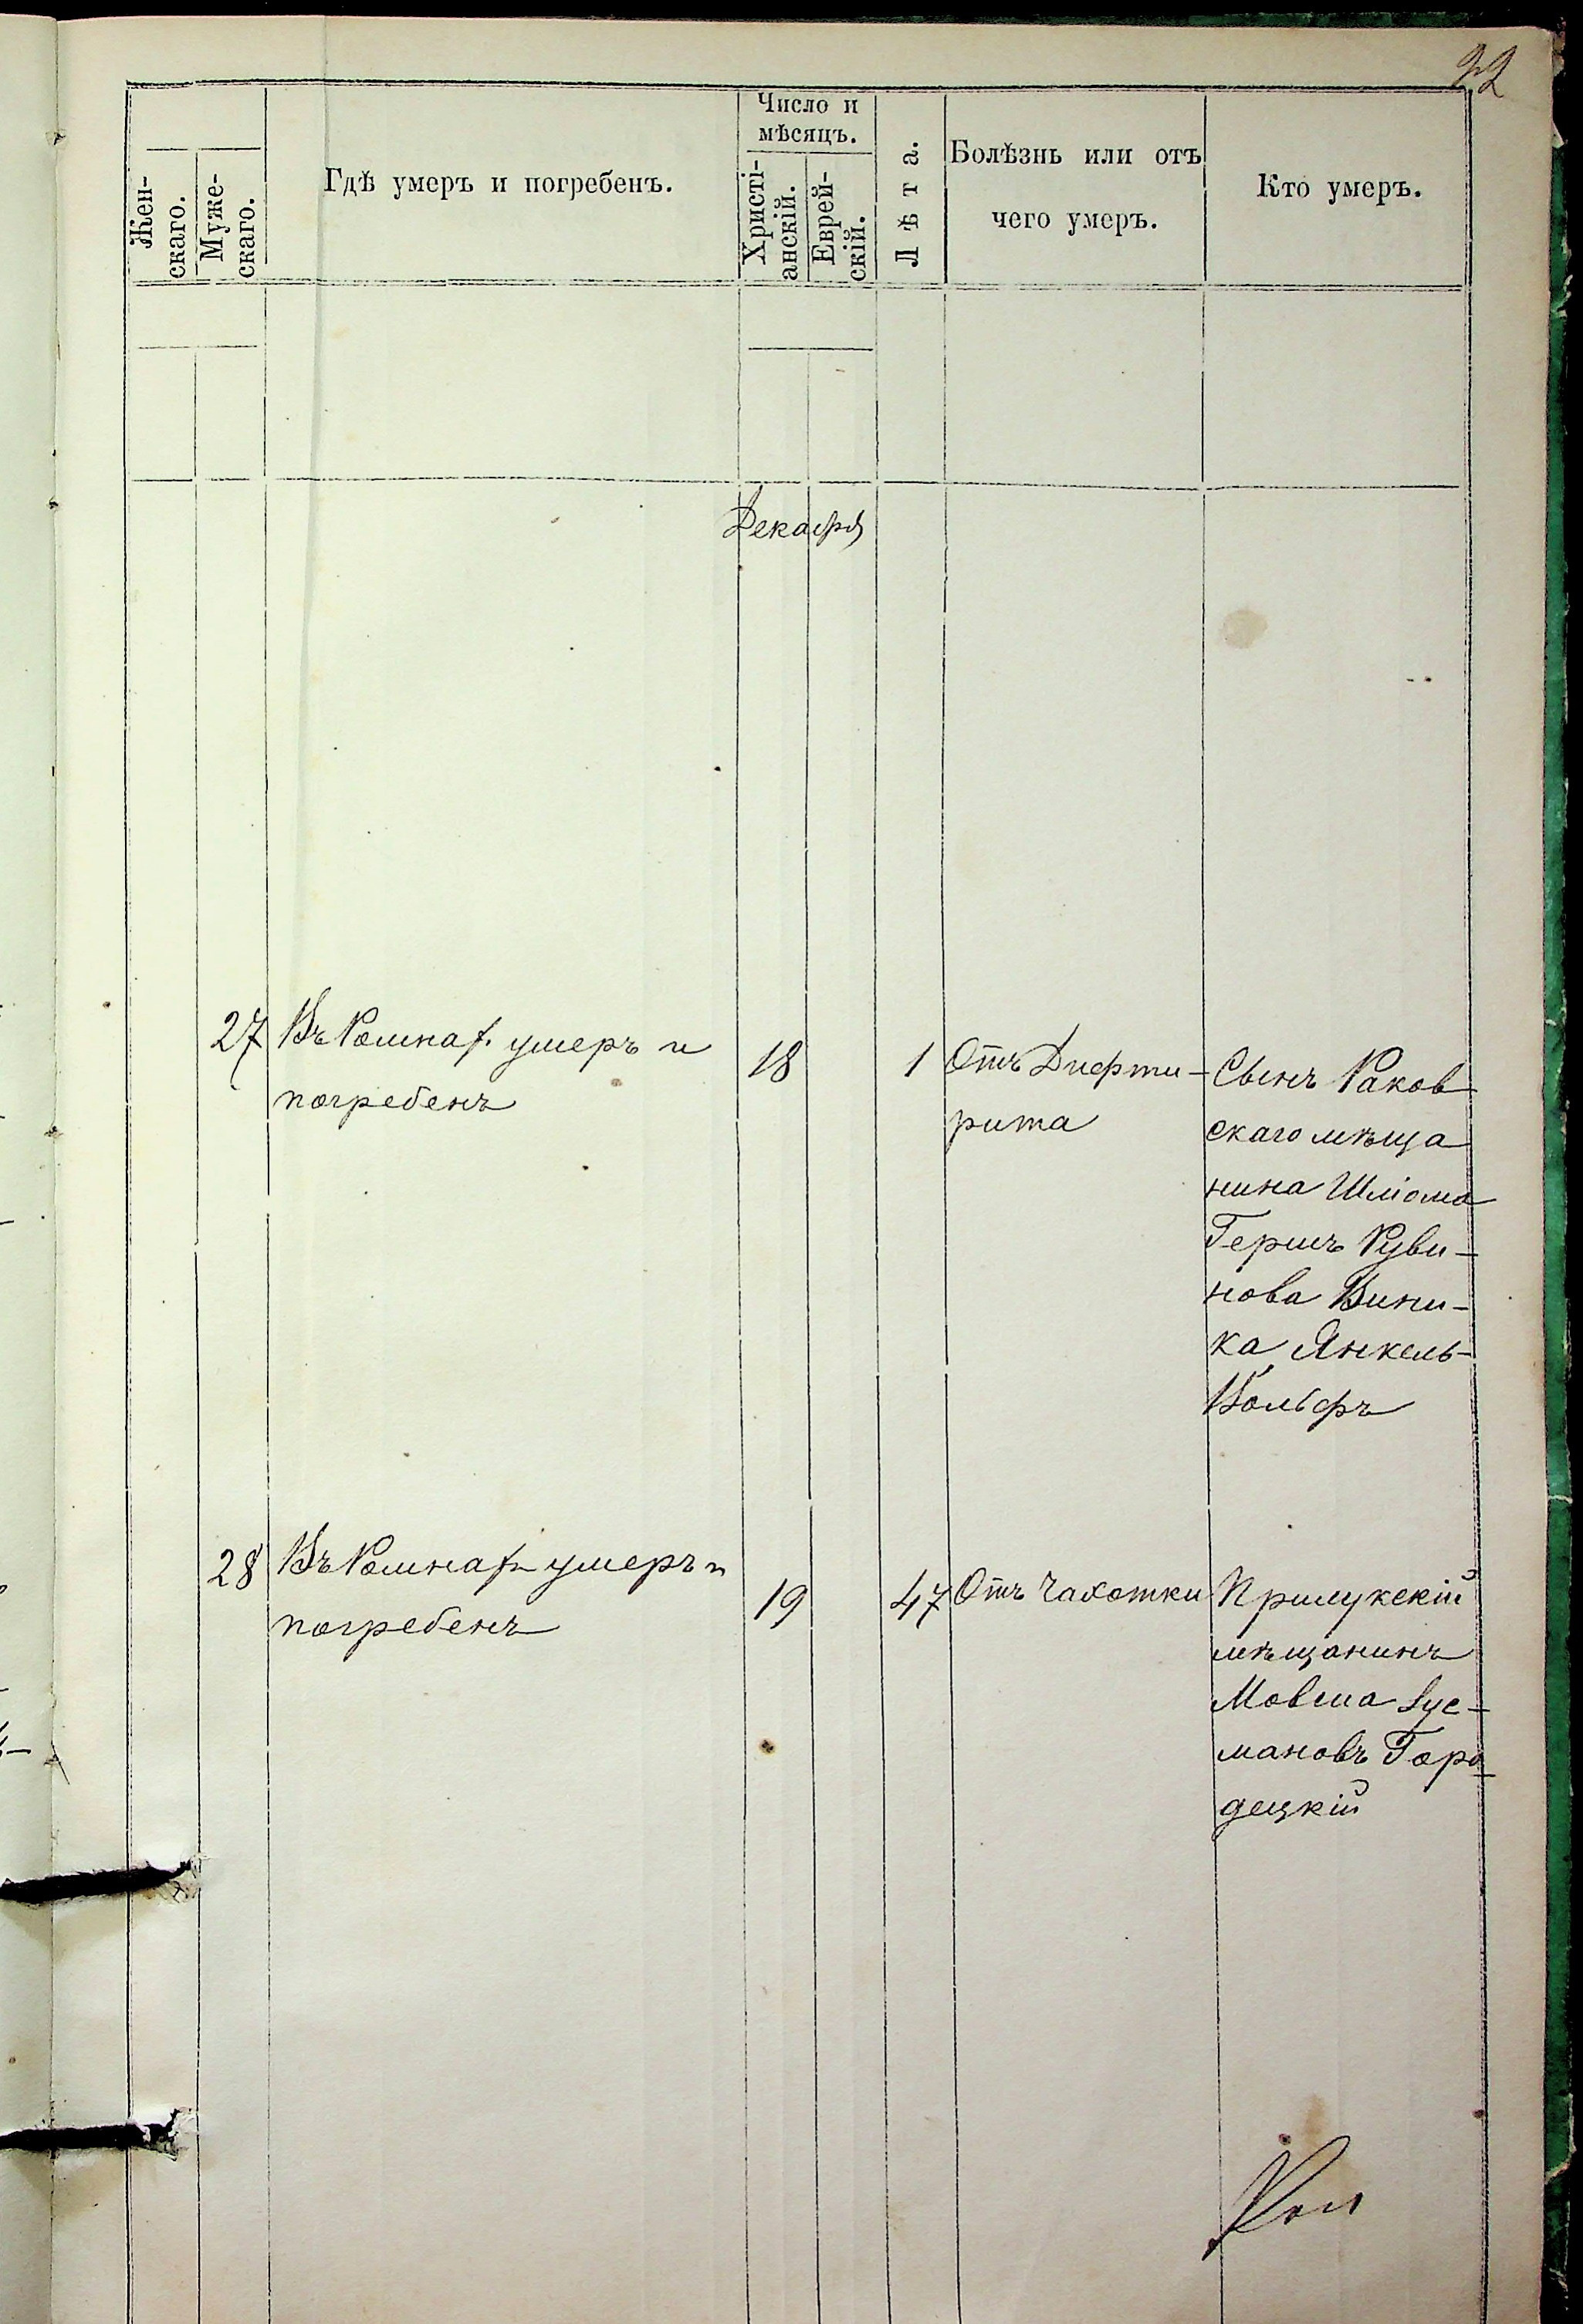 22
Жен-
скаго.
Муже-
скаго.
Гдѣ умеръ и погребенъ.
Число и
мѣсяцъ.
Христі-
анскій.
Еврей-
скій.
Лѣта.
Болѣзнь или отъ
чего умеръ.
Кто умеръ.
Декабря
27
Въ умеръ и
погребенъ
18
1
Отъ Дифти-
рита
Сынъ Раков
скаго мѣща
нина Шліома
Гершъ Руви-
нова Вини-
ка Янкель-
Вольфъ
28
Въ умеръ и
погребенъ
19
47
Отъ Чахотки
Прилукскій
мѣщанинъ
Мовша
мановъ Горо
децкій